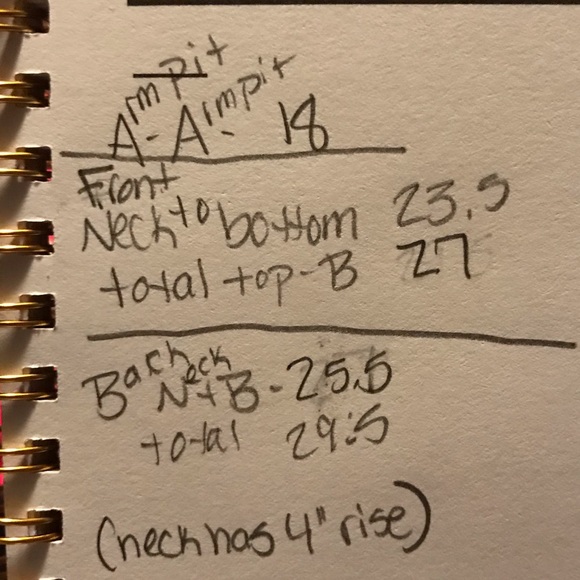 Armpit
A-Armpit- 18
Front
Neck to bottom 23.5
total top-B 27
Back Neck
N+B- 25.5
total 29.5
(neck has 4" rise)